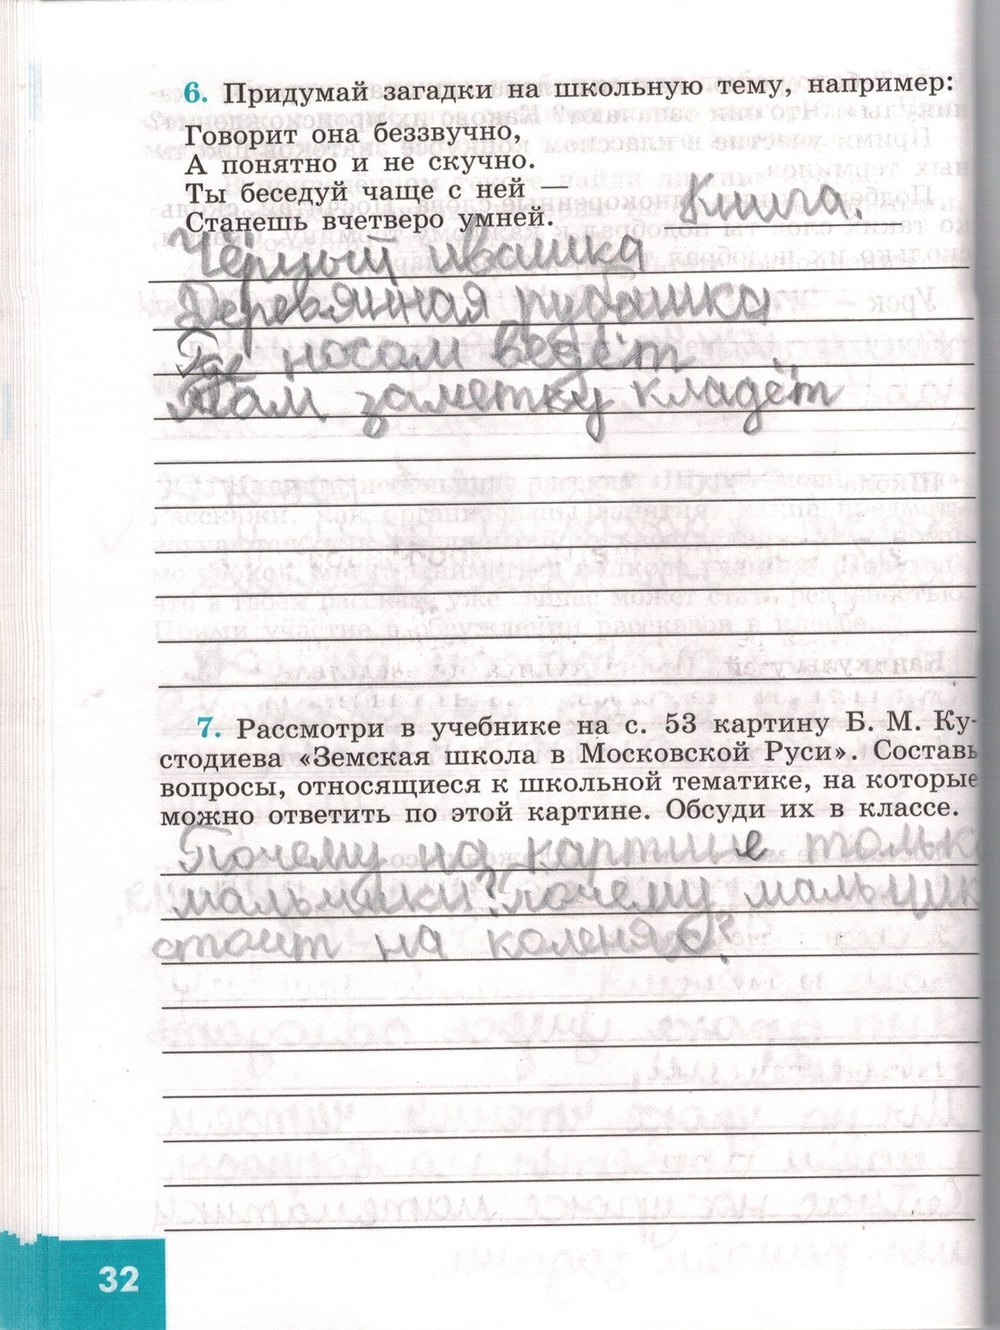 6. Придумай загадки на школьную тему, например:
Говорит она беззвучно,
А понятно и не скучно.
Ты беседуй чаще с ней —
Станешь вчетверо умней. Книга.
Чёрный ивашка
Деревянная рубашка
Где носом ведёт
Там заметку кладёт
7. Рассмотри в учебнике на с. 53 картину Б. М. Ку-
стодиева «Земская школа в Московской Руси». Составь
вопросы, относящиеся к школьной тематике, на которые
можно ответить по этой картине. Обсуди их в классе.
Почему на картине тольк
мальчики? почему мальчик
стоит на коленях?
32